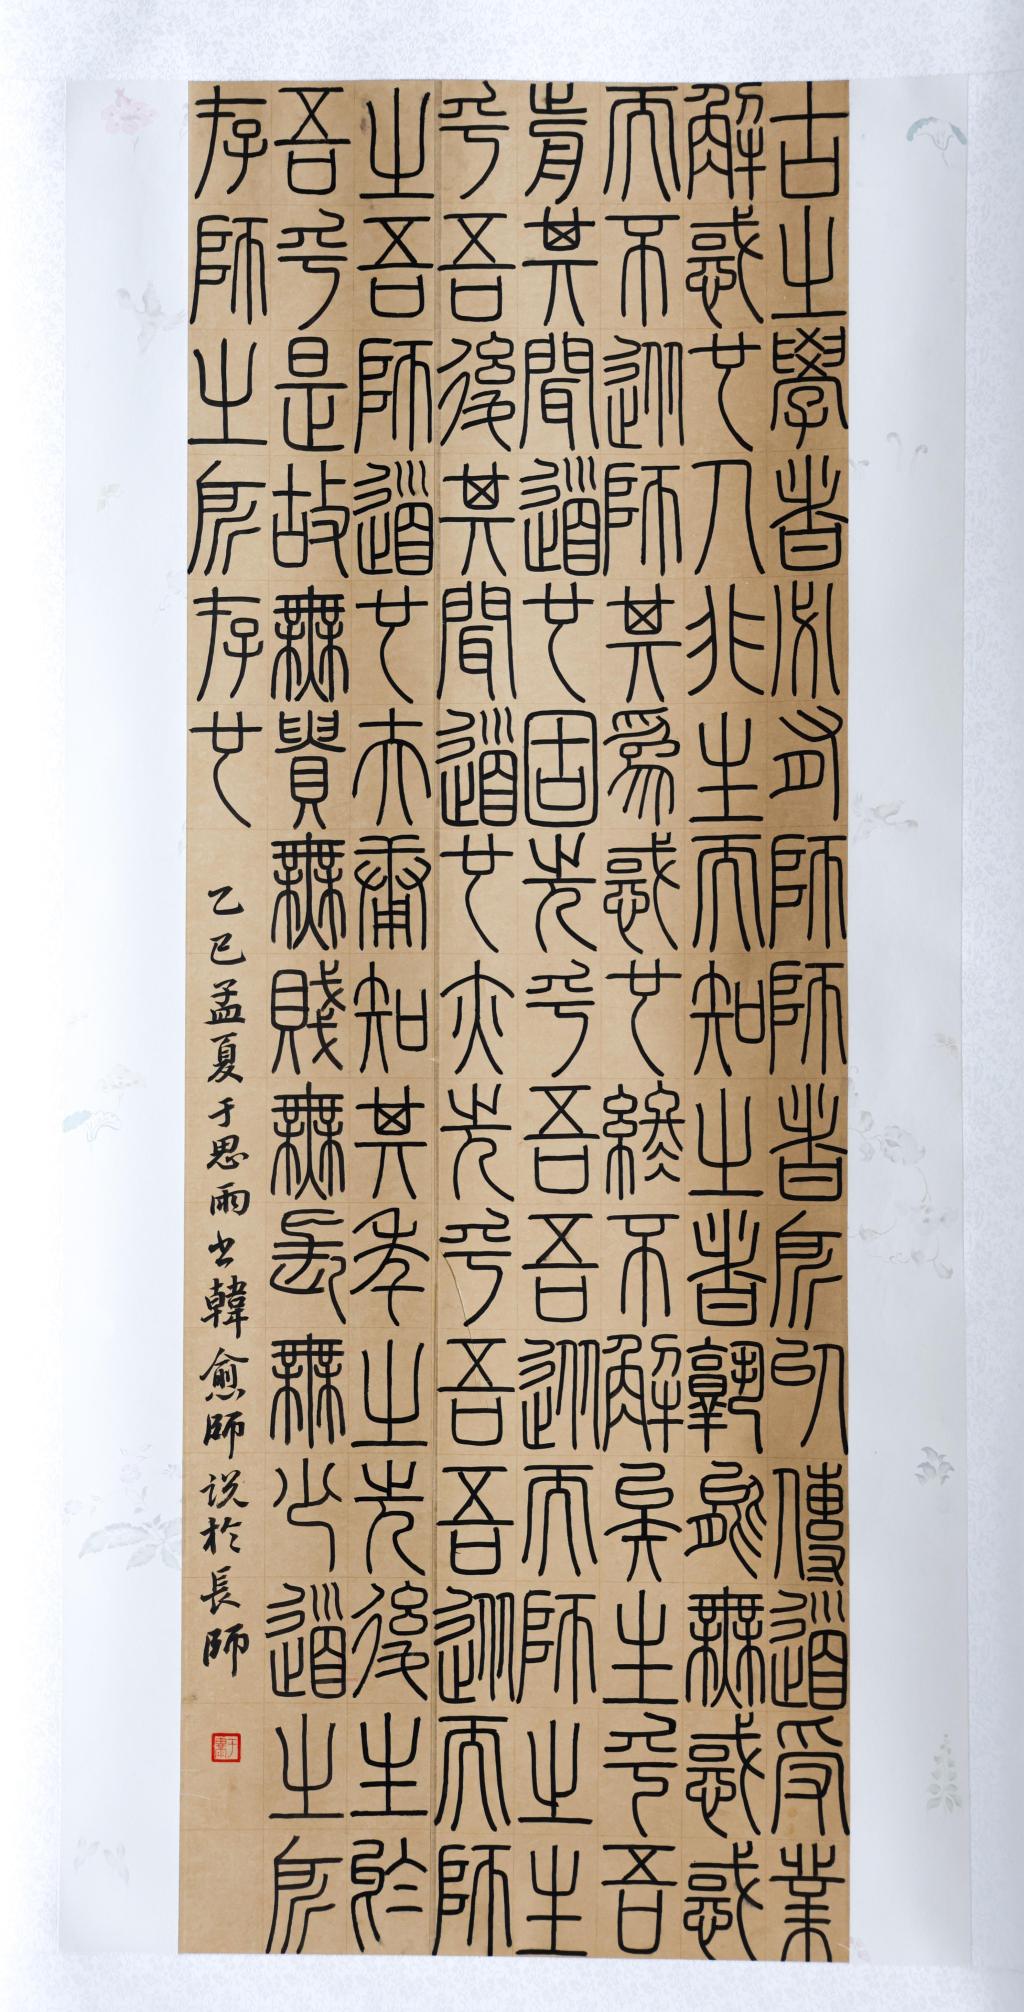 古之學者必有師師者所以傳道受業
解惑也人非生而知之者孰能無惑惑
而不從師其爲惑也終不解矣生乎吾
前其聞道也固先乎吾吾從而師之生
乎吾後其聞道也亦先乎吾吾從而師
之吾師道也夫庸知其年之先後生於
吾乎是故無貴無賤無長無少道之所
存師之所存也
乙巳孟夏于思雨书韓愈師说於長師